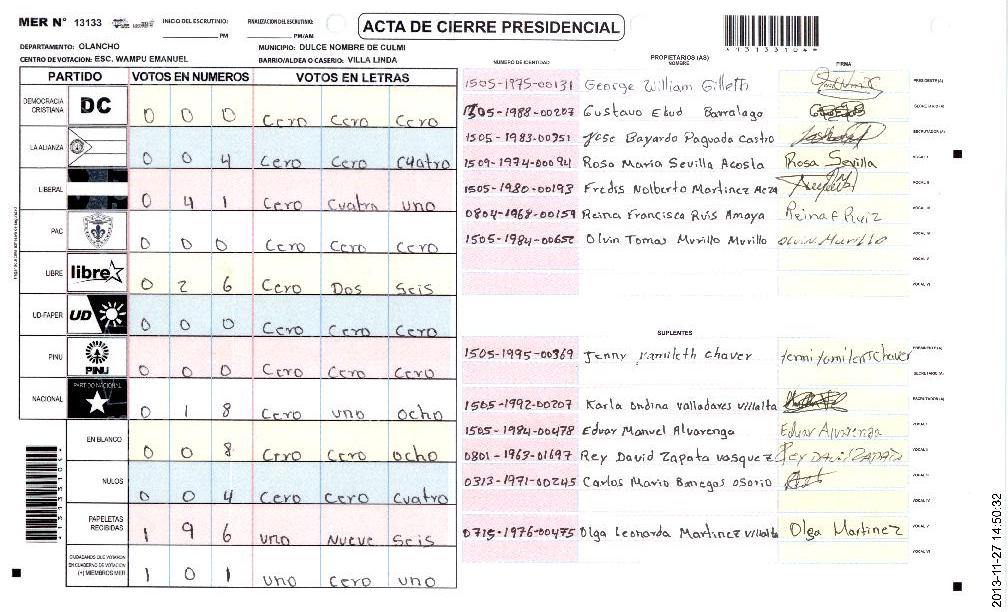 MER N° 13133
INICIO DEL ESCRUTINIO: PM
FINALIZACION DEL ESCRUTINIO: PM/AM
ACTA DE CIERRE PRESIDENCIAL
DEPARTAMENTO: OLANCHO
MUNICIPIO: DULCE NOMBRE DE CULMI
CENTRO DE VOTACION: ESC. WAMPU EMANUEL
BARRIO/ALDEA O CASERIO: VILLA LINDA
PARTIDO VOTOS EN NUMEROS VOTOS EN LETRAS
DEMOCRACIA CRISTIANA DC 0 0 0 Cero Cero Cero
LA ALIANZA 0 0 4 Cero Cero Cuatro
LIBERAL 0 4 1 Cero Cuatro uno
PAC 0 0 0 Cero Cero Cero
LIBRE libre 0 2 6 Cero Dos Seis
UD-FAPER UD 0 0 0 Cero Cero Cero
PINU PINU 0 0 0 Cero Cero Cero
NACIONAL PARTIDO NACIONAL 0 1 8 Cero uno ocho
EN BLANCO 0 0 8 Cero Cero ocho
NULOS 0 0 4 Cero Cero Cuatro
PAPELETAS RECIBIDAS 1 9 6 uno Nueve Seis
CIUDADANOS QUE VOTARON EN CUADERNO DE VOTACION (+) MIEMBROS MER 1 0 1 uno Cero uno
PROPIETARIOS (AS)
NUMERO DE IDENTIDAD NOMBRE FIRMA
1505-1975-00131 George William Gilleth PRESIDENTE(A)
1505-1988-00207 Gustavo Ebud Barralaga SECRETARIO(A)
1505-1983-00351 Jose Bayardo Paguada Castro ESCRUTADOR(A)
1509-1974-00094 Rosa Maria Sevilla Acosta Rosa Sevilla VOCAL I
1505-1980-00193 Fredis Nolberto Martinez VOCAL II
0804-1968-00159 Reina Francisca Ruis Amaya Reina F Ruiz VOCAL III
1505-1984-00652 Olvin Tomas Murillo Murillo olvin Murillo VOCAL IV
VOCAL V
VOCAL VI
SUPLENTES
1505-1995-00369 Jenny Yamileth Chaver PRESIDENTE(A)
SECRETARIO(A)
1505-1992-00207 Karla ondina valladares villalta ESCRUTADOR(A)
1505-1984-00478 Eduar Manuel Alvarenga Eduar Alvarenga VOCAL I
0801-1963-01697 Rey David Zapata vasquez Rey DAVID ZAPATA VOCAL II
0313-1971-00245 Carlos Mario Banegas osorio VOCAL III
VOCAL IV
0715-1976-00475 Olga Leonarda Martinez villalta Olga Martinez VOCAL V
VOCAL VI
2013-11-27 14:50:32